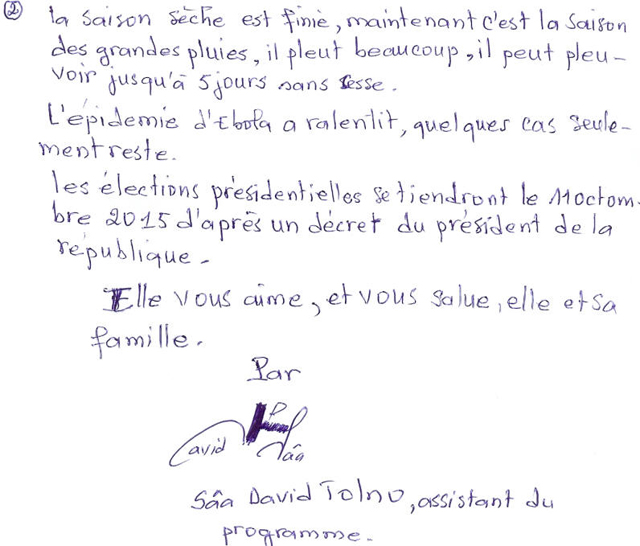 ②
la saison sèche est finie, maintenant c'est la saison
des grandes pluies, il pleut beaucoup, il peut pleu-
voir jusqu'à 5 jours sans sesse.
L'épidemie d'Ebola a ralentit, quelques cas seule-
ment reste.
les élections présidentielles se tiendront le 11 octom-
bre 2015 d'après un décret du président de la
république.
Elle vous aime, et vous salue, elle et sa
famille.
Par
David Sâa
Sâa David Tolno, assistant du
programme.